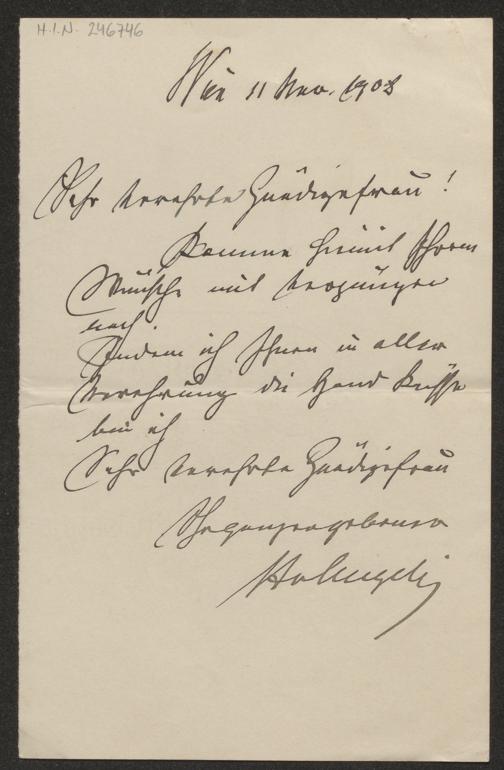 H.I.N. 246746
Wien 11 Nov. 1908
Sehr verehrte Gnädigefrau!
Komme hiemit Ihrem
Wünsche mit vergnügen
nach.
Indem ich Ihnen in aller
Verehrung die Hand küsse
bin ich
Sehr verehrte Gnädigefrau
Ihr ganzergebener